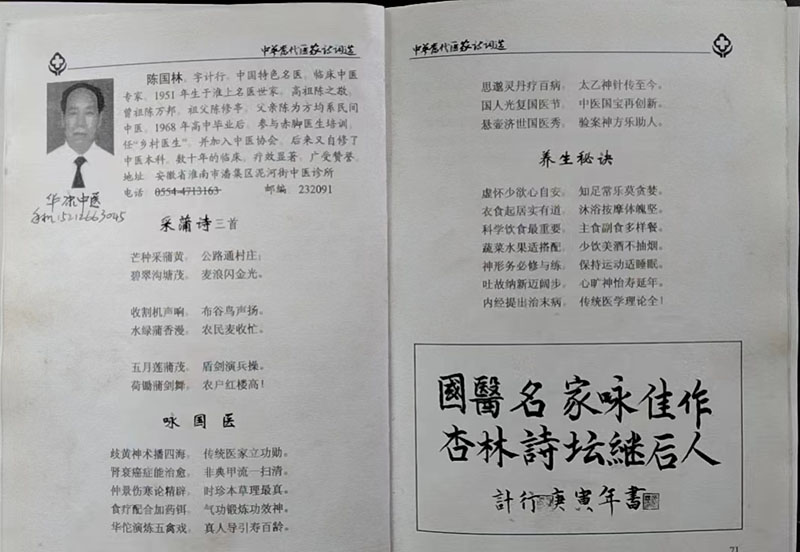 中华当代医家诗词选
陈国林，字计行，中国特色名医，临床中医
专家，1951年生于淮上名医世家，高祖陈之敬，
曾祖陈万邦，祖父陈修亭，父亲陈为方均系民间
中医，1968年高中毕业后，参与赤脚医生培训，
任“乡村医生”，并加入中医协会，后来又自修了
中医本科，数十年的临床，疗效显著，广受赞誉。
地址：安徽省淮南市潘集区泥河街中医诊所
电话：0554-4713163 邮编：232091
华康中医
手机15212663045
采蒲诗三首
芒种采蒲黄，公路通村庄；
碧翠沟塘茂，麦浪闪金光。
收割机声响，布谷鸟声扬。
水绿蒲香漫，农民麦收忙。
五月莲蒲茂，盾剑演兵操。
荷锄蒲剑舞，农户红楼高！
咏国医
歧黄神术播四海，传统医家立功勋。
肾衰癌症能治愈，非典甲流一扫清。
仲景伤寒论精辟，时珍本草理最真。
食疗配合加药饵，气功锻炼功效神。
华佗演炼五禽戏，真人导引寿百龄。
中华当代医家诗词选
思邈灵丹疗百病，太乙神针传至今。
国人光复国医节，中医国宝再创新。
悬壶济世国医秀，验案神方乐助人。
养生秘诀
虚怀少欲心自安，知足常乐莫贪婪。
衣食起居实有道，沐浴按摩体魄坚。
科学饮食最重要，主食副食多样餐。
蔬菜水果适搭配，少饮美酒不抽烟。
神形务必修与练，保持运动适睡眠。
吐故纳新迈阔步，心旷神怡寿延年。
内经提出治未病，传统医学理论全！
國醫名家咏佳作
杏林詩坛継后人
計行庚寅年書
71